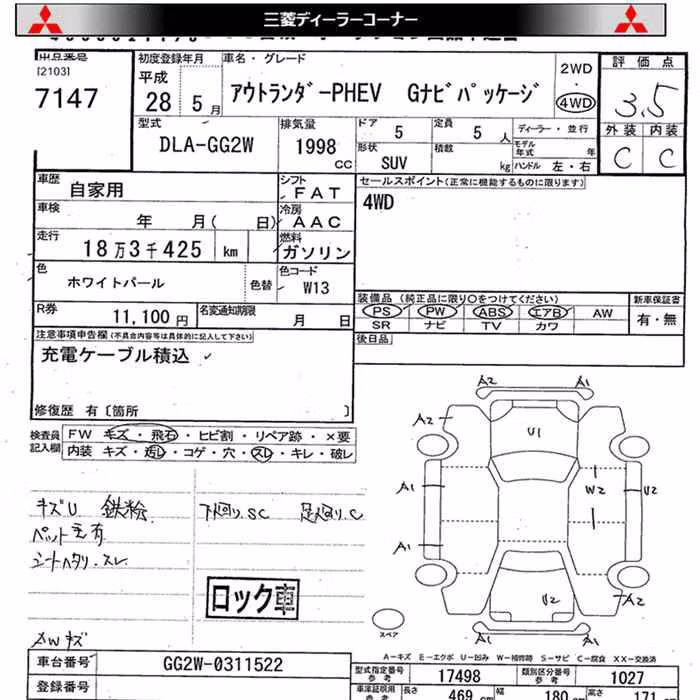 三菱ディーラーコーナー
出品番号 初度登録年月 車名・グレード 2WD 評価点
[2103] 平成
7147 28 5月 アウトランダーPHEV Gナビパッケージ 4WD 3.5
型式 排気量 ドア 定員 ディーラー・並行 外装 内装
DLA-GG2W 1998 CC 5 5人 モデル年式 年 C C
形状 積載
SUV kg ハンドル 左・右
車歴 自家用 シフト FAT セールスポイント(正常に機能するものに限ります)
車検 年 月( 日) 冷房 AAC 4WD
走行 18万3千425 km 燃料 ガソリン
色 ホワイトパール 色替 色コード W13
装備品(純正品に限り○をつけてください) 新車保証書
R券 11,100円 名変通知期限 月 日 PS PW ABS エアB AW 有・無
SR ナビ TV カワ
注意事項申告欄(不具合内容等は具体的に記入して下さい) 後日品
充電ケーブル積込
修復歴 有〔箇所 〕
検査員記入欄 FW キズ・飛石・ヒビ割・リペア跡・×要
内装 キズ・汚レ・コゲ・穴・スレ・キレ・破レ
A2 A1
A2 U1
A1 W2 U2
A1
U2 A2
A1
キズU 鉄粉 下廻り.SC 足廻り.C
ペット毛有
シートヘタリ.スレ
ロック車
AWキズ
スペア
A−キズ E−エクボ U−凹み W−補修跡 S−サビ C−腐食 XX−交換済
車台番号 GG2W-0311522 型式指定番号 参考 17498 類別区分番号 参考 1027
登録番号 車検証記載 参考 長さ 469 cm 幅 180 cm 高さ 171